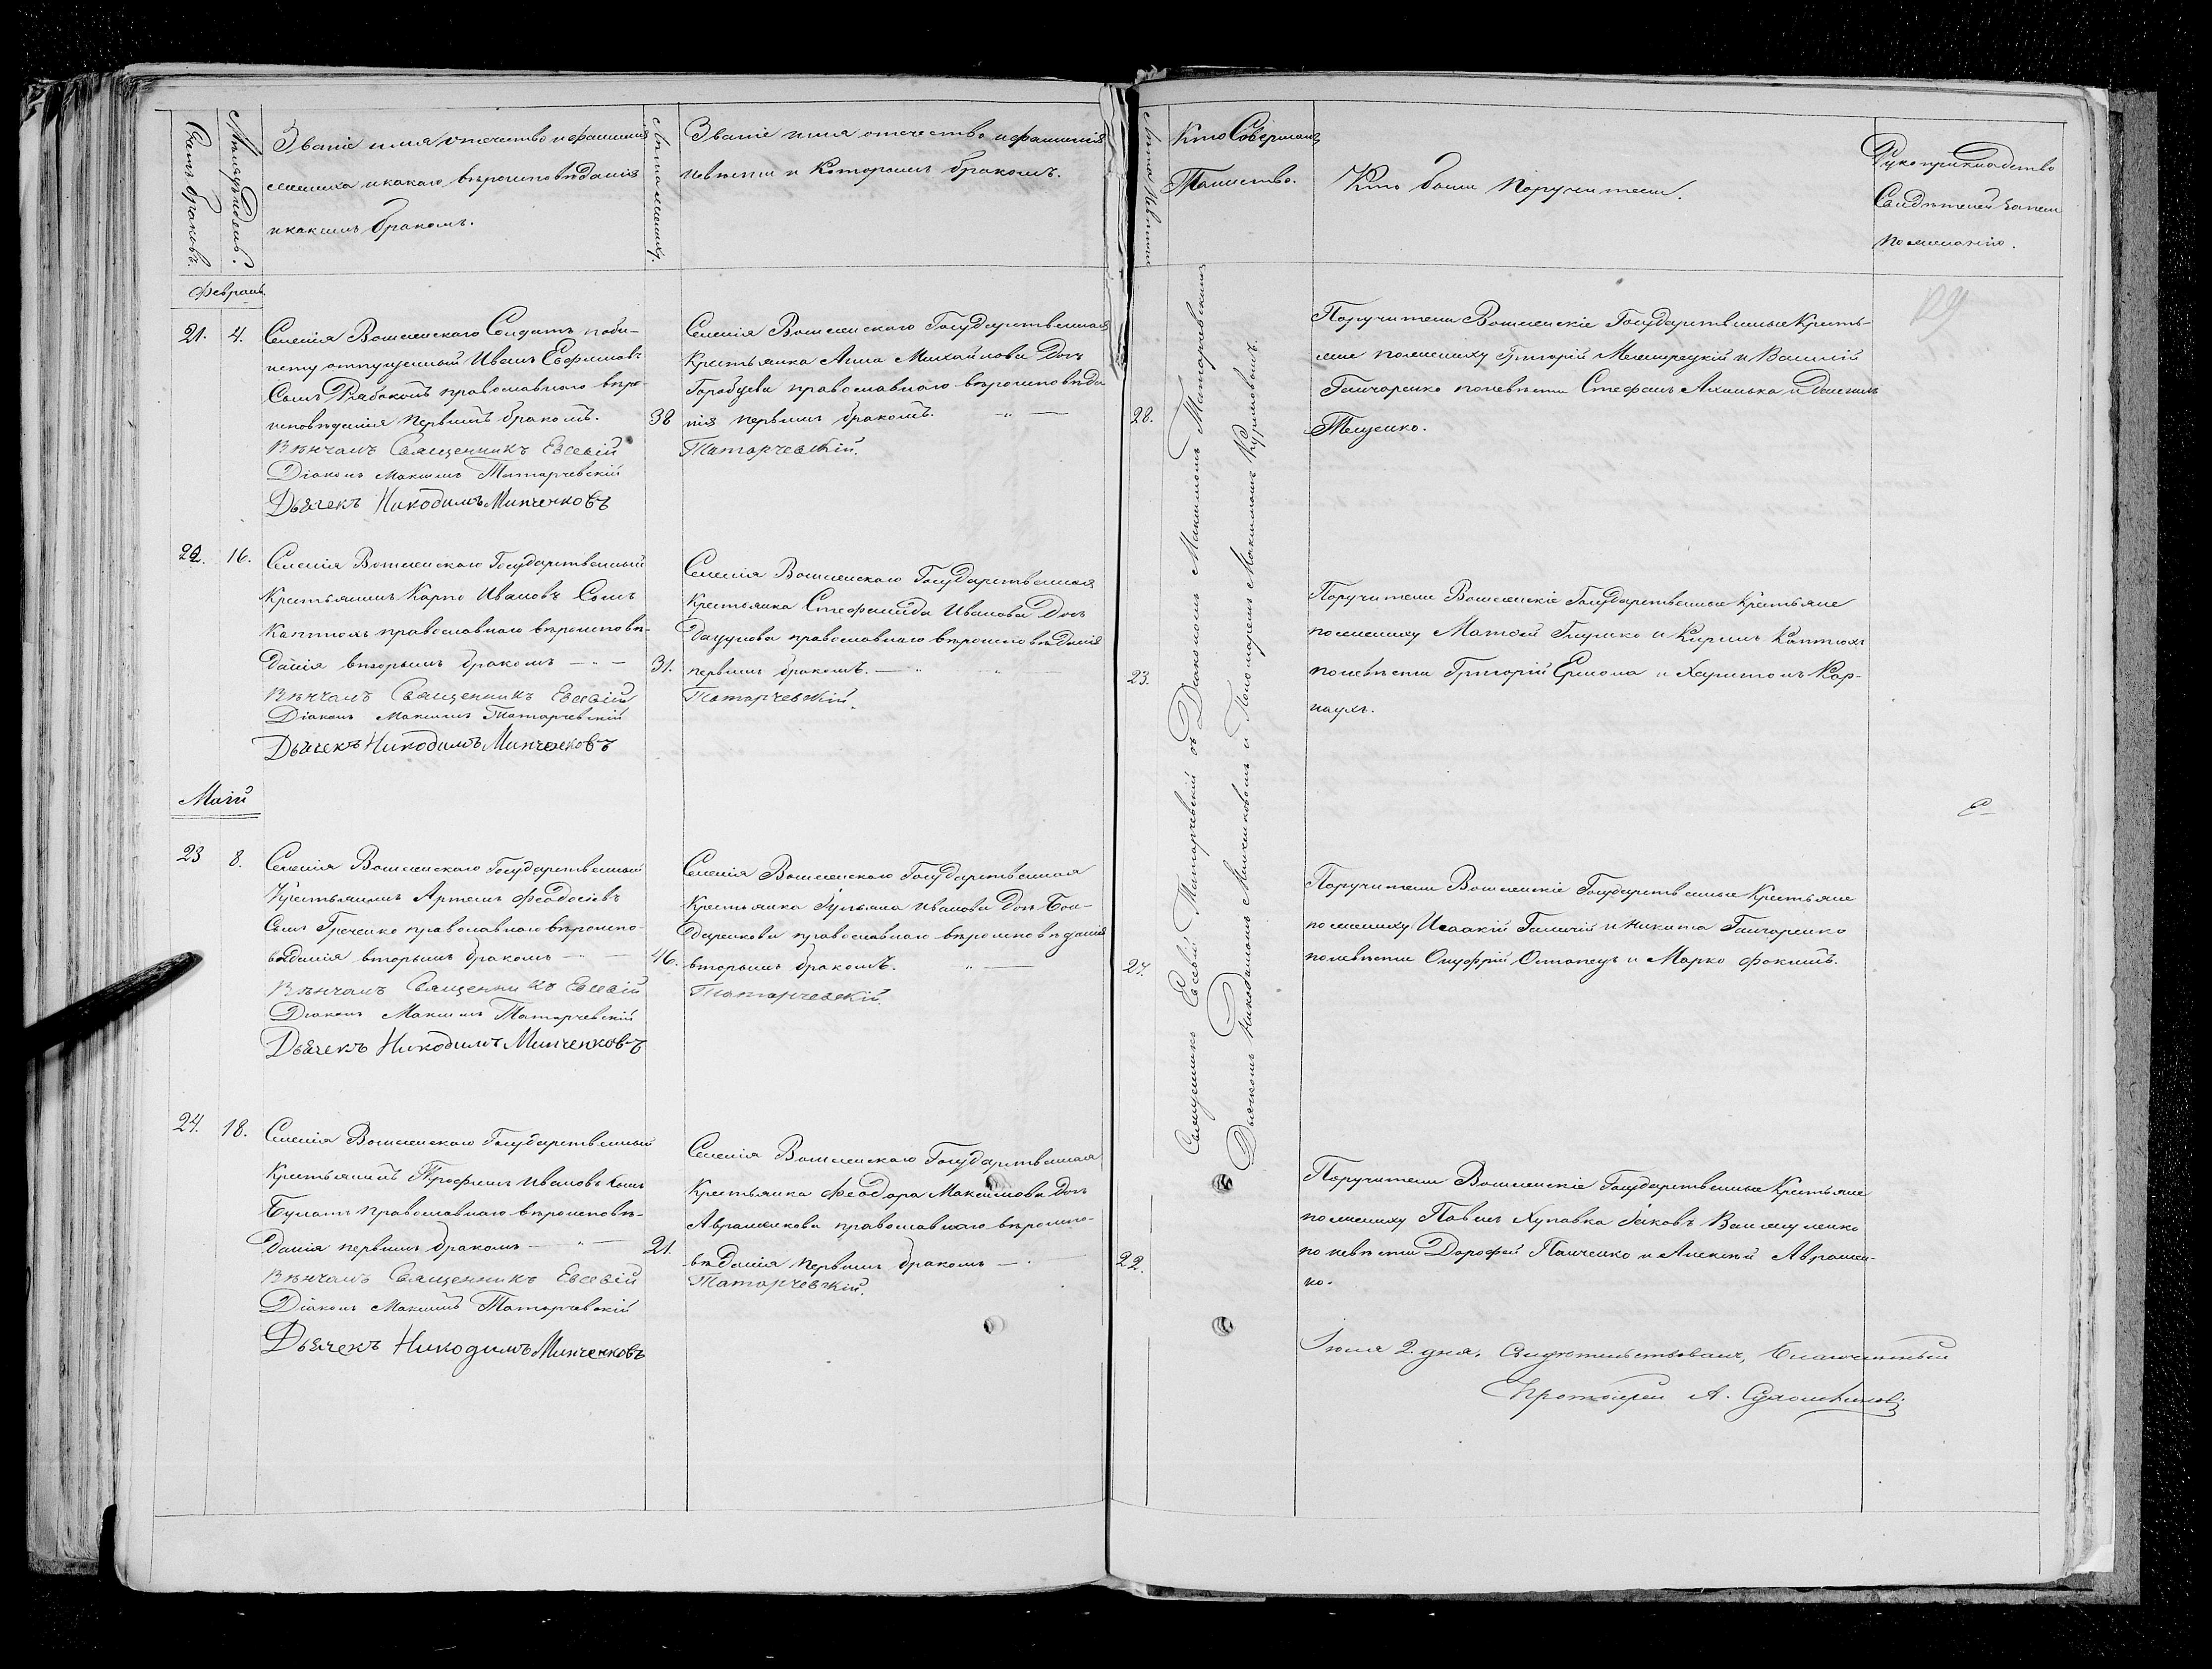 Счетъ браковъ.
Мѣсяцъ и день.
Званіе имя отечество и фамилия
жениха и какаго вѣроисповѣданія
и какимъ бракомъ.
Лѣта жениха.
Званіе имя отечество и фамилія
невѣсти и Которымъ бракомъ.
Лѣта Невѣсти
Кто Совершалъ
Таинство.
Кто были Поручители.
Рукоприкладство
Свидѣтелей записи
по желанію.
Февраль.
21. 4.
Селенія Вошеенскаго Солдатъ наби-
лету отпущенный Иванъ Ефимовъ
Сынъ Рабоконь православнаго вѣро-
исповѣданія первымъ бракомъ.
38
Вѣнчалъ Священникъ Евсевій
Діаконъ Максимъ Татарчевскій
Дьячекъ Никодимъ Минченковъ
Селенія Государственная
Крестьянка Анна Михайлова Дочь
Горобцева православнаго вѣроисповѣда
нія первымъ бракомъ.
Татарчевскій.
28.
Поручители Государственные Кресть-
яне по жениху Григорій и Василій
Гончаренко по невѣсти Стефанъ и Даниилъ
Тещенко.
22. 16.
Селенія Государственный
Крестьянинъ Карпъ Ивановъ Сынъ
Каптюхъ православнаго вѣроисповѣ-
данія вторымъ бракомъ
31.
Вѣнчалъ Священникъ Евсевій
Діаконъ Максимъ Татарчевскій
Дьячекъ Никодимъ Минченковъ
Селенія Государственная
Крестьянка Стефанида Иванова Дочь
Дацукова православнаго вѣроисповѣданія
первымъ бракомъ.
Татарчевскій.
23.
Поручители Государственные Крестьяне
по жениху Матѳей Глушко и Кирилъ Каптюхъ
по невѣсти Григорій Ермола и Харитонъ Кар-
наухъ.
Маій
23 8.
Селенія Государственный
Крестьянинъ Артемъ Феодосіевъ
Сынъ Греченко православнаго вѣроиспо-
вѣданія вторымъ бракомъ
46.
Вѣнчалъ Священникъ Евсевій
Діаконъ Максимъ Татарчевскій
Дьячекъ Никодимъ Минченковъ
Селенія Государственная
Крестьянка Іульяна Иванова Дочь Бон-
даренкова православнаго вѣроисповѣданія
вторымъ бракомъ.
Татарчевскій.
27.
Поручители Государственные Крестьяне
по жениху Исаакій и Никита Гончаренко
по невѣсти Онуфрій Остапецъ и Марко Фокинъ.
24. 18.
Селенія Государственный
Крестьянинъ Трофимъ Ивановъ Сынъ
Булатъ Православнаго вѣроисповѣ-
данія первымъ бракомъ
21.
Вѣнчалъ Священникъ Евсевій
Діаконъ Максимъ Татарчевскій
Дьячекъ Никодимъ Минченковъ
Селенія Государственная
Крестьянка Феодора Максимова Дочь
Авраменкова православнаго вѣроиспо-
вѣданія первымъ бракомъ
Татарчевскій.
22.
Поручители Государственные Крестьяне
по жениху Павелъ Яковъ Василенко
по невѣсти Дорофей Панченко и Алексѣй Аврамен-
ко.
Священникъ Евсевій Татарчевскій съ Діакономъ Максимомъ Татарчевскимъ
Дьячкомъ Никодимомъ Минченковымъ и Пономаремъ Максимомъ Куриловымъ.
Іюля 2. дня. Свидѣтельствовалъ, Благочинный
Протоіерей А.